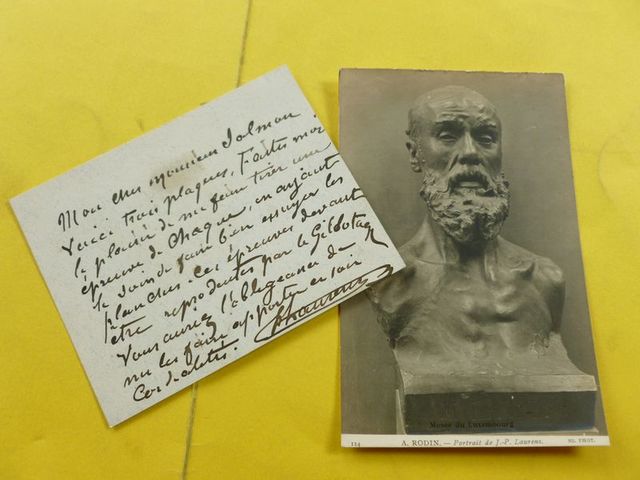 Mon cher monsieur Salmon
Voici trois plaques. Faites moi
le plaisir de me faire tirer une
épreuve de chaque, en ayant
le soin de faire bien essuyer les
planches. Ces épreuves devant
être reproduites par le Gillotage
Vous auriez l'obligeance de
me les faire apporter ce soir
Cordialités.
Musée du Luxembourg
124 A. RODIN. — Portrait de J.-P. Laurens. ND. PHOT.